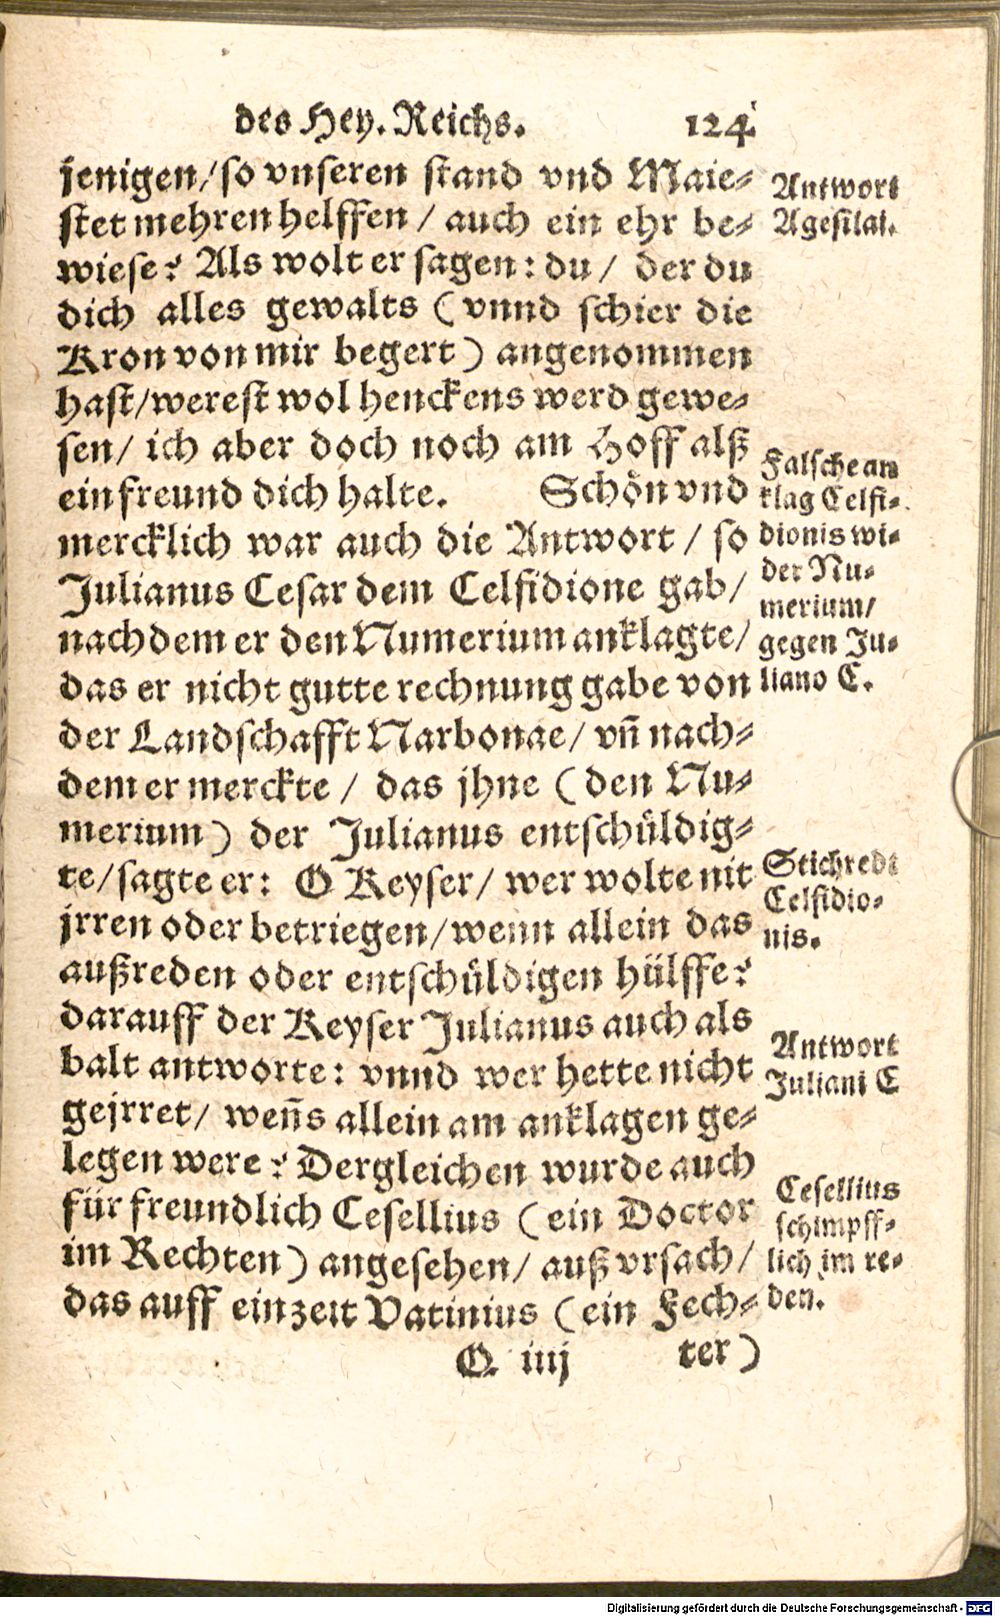 des Hey. Reichs. 124.
jenigen/ so vnseren stand vnd Maie-
stet mehren helffen / auch ein ehr be-
wiese? Als wolt er sagen: du / der du
dich alles gewalts (vnnd schier die
Kron von mir begert) angenommen
hast/ werest wol henckens werd gewe-
sen/ ich aber doch noch am Hoff alß
ein freund dich halte. Schön vnd
mercklich war auch die Antwort / so
Julianus Cesar dem Celsidione gab/
nachdem er den Numerium anklagte/
das er nicht gutte rechnung gabe von
der Landschafft Narbonae/ vn̄ nach-
dem er merckte / das jhne (den Nu-
merium) der Julianus entschüldig-
te/ sagte er: O Keyser/ wer wolte nit
jrren oder betriegen/ wenn allein das
außreden oder entschüldigen hülffe?
darauff der Keyser Julianus auch als
balt antworte: vnnd wer hette nicht
gejrret/ wen̄s allein am anklagen ge-
legen were? Dergleichen wurde auch
für freundlich Cesellius (ein Doctor
im Rechten) angesehen/ auß vrsach/
das auff ein zeit Vatinius (ein Fech-
Q iiij ter)
Antwort
Agesilai.
Falsche an
klag Celsi-
dionis wi-
der Nu-
merium/
gegen Ju-
liano C.
Stichrede
Celsidio-
nis.
Antwort
Juliani C
Cesellius
schimpff-
lich im re-
den.
Digitalisierung gefördert durch die Deutsche Forschungsgemeinschaft - DFG